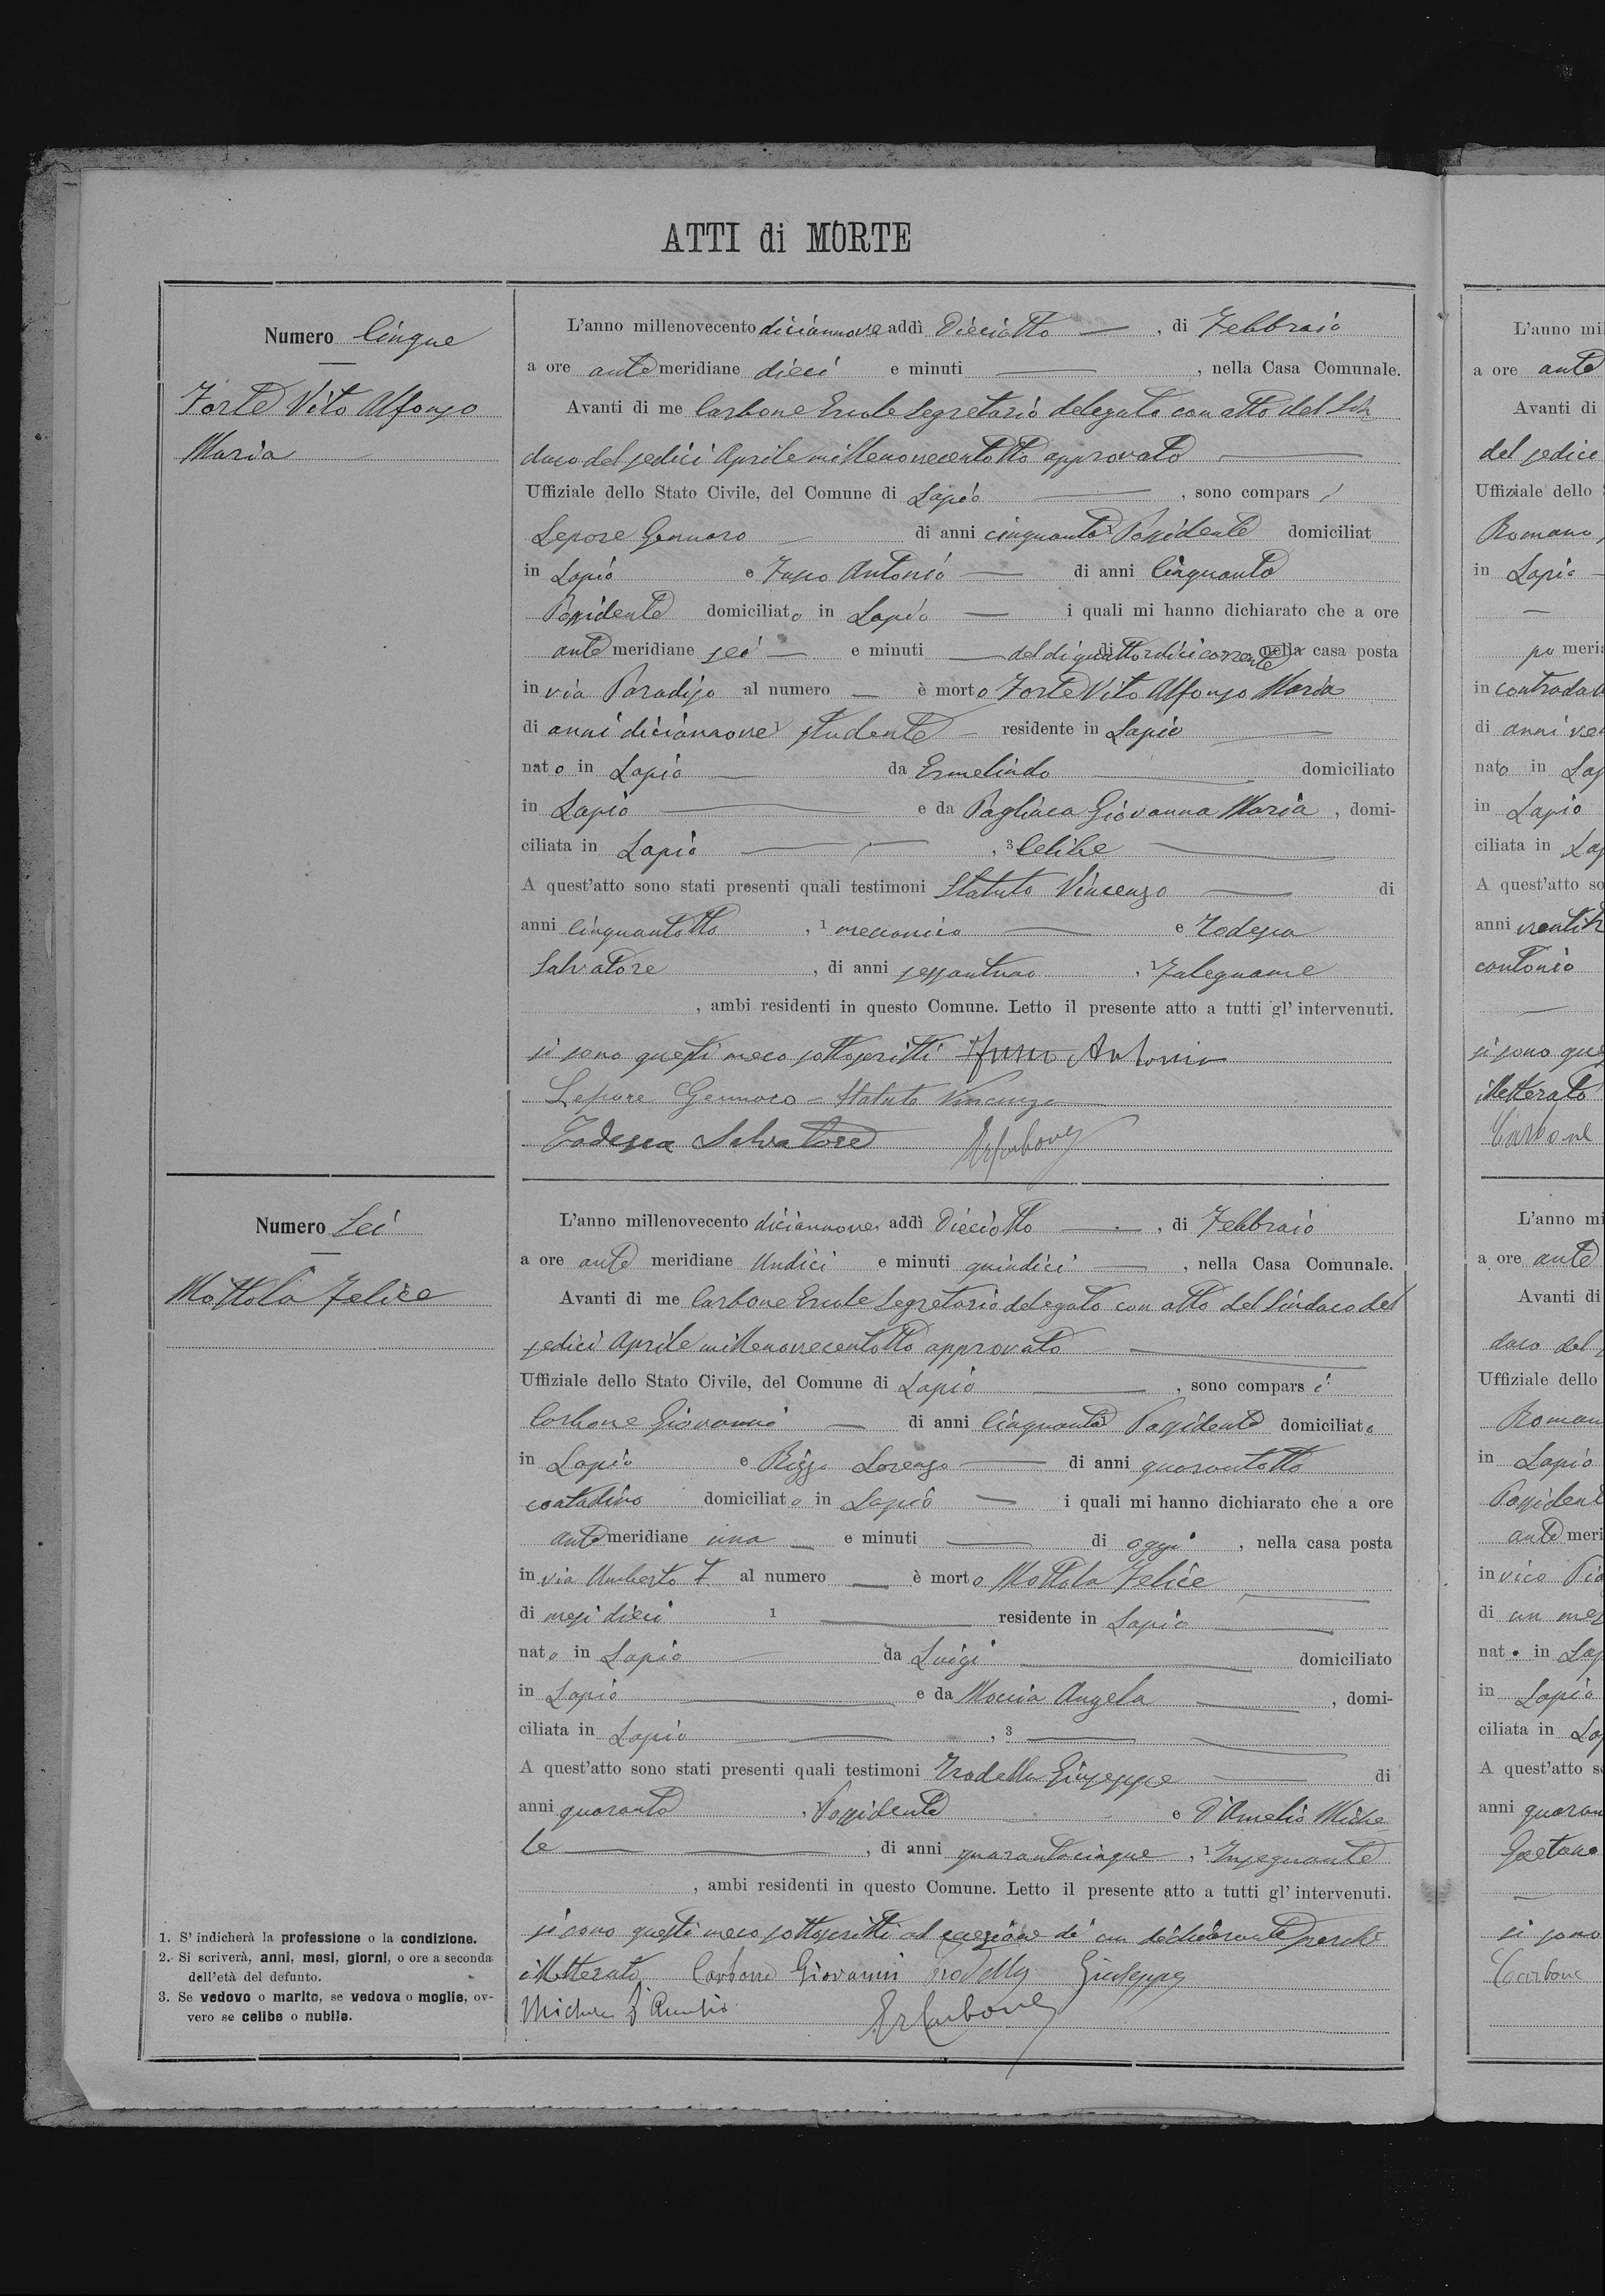 ATTI di MORTE
Numero Cinque
Forte Vito Alfonso
Maria
L'anno millenovecento diciannove addì Dieciotto, di Febbraio
a ore ante meridiane dieci e minuti — , nella Casa Comunale.
Avanti di me Carbone Ercole Segretario delegato con atto del Sin
daco del sedici Aprile millenovecentotto approvato
Uffiziale dello Stato Civile, del Comune di Lapio — , sono compars i
Lepore Gennaro — di anni cinquanta 1 Possidente domiciliat
in Lapio e Fusco Antonio — di anni Cinquanta
Possidente domiciliato in Lapio — i quali mi hanno dichiarato che a ore
ante meridiane sei — e minuti — del dì quattordici corrente nella casa posta
in via Paradiso al numero — è morto Forte Vito Alfonso Maria
di anni diciannove 1 studente — residente in Lapio —
nato in Lapio — da Ermelindo — domiciliato
in Lapio — e da Pagliuca Giovanna Maria , domi-
ciliata in Lapio — , 3 Celibe —
A quest'atto sono stati presenti quali testimoni Statuto Vincenzo — di
anni Cinquantotto , 1 meccanico — e Todesca
Salvatore , di anni sessantuno , 1 Falegname
, ambi residenti in questo Comune. Letto il presente atto a tutti gl' intervenuti.
si sono questi meco sottoscritti Fusco Antonio
Lepore Gennaro = Statuto Vincenzo
Todesca Salvatore ErCarbone
Numero Sei
Mottola Felice
L'anno millenovecento diciannove addì Dieciotto — , di Febbraio
a ore ante meridiane Undici e minuti quindici — , nella Casa Comunale.
Avanti di me Carbone Ercole Segretario delegato con atto del Sindaco del
sedici Aprile millenovecentotto approvato —
Uffiziale dello Stato Civile, del Comune di Lapio — , sono compars i
Carbone Giovanni — di anni Cinquanta 1 Possidente domiciliato
in Lapio e Rizzo Lorenzo — di anni quarantotto
contadino domiciliato in Lapio — i quali mi hanno dichiarato che a ore
ante meridiane una — e minuti — di oggi , nella casa posta
in via Umberto I al numero — è morto Mottola Felice
di mesi dieci 1 — residente in Lapio —
nato in Lapio — da Luigi — domiciliato
in Lapio — e da Moccia Angela — , domi-
ciliata in Lapio — , 3 —
A quest'atto sono stati presenti quali testimoni Trodella Giuseppe — di
anni quaranta , Possidente e D'Amelio Miche
le — , di anni quarantacinque , 1 Insegnante
, ambi residenti in questo Comune. Letto il presente atto a tutti gl' intervenuti.
si sono questi meco sottoscritti ad eccezione di un dichiarante perché
illetterato Carbone Giovanni Trodella Giuseppe
Michele D'Amelio ErCarbone
1. S' indicherà la professione o la condizione.
2. Si scriverà, anni, mesi, giorni, o ore a seconda
dell'età del defunto.
3. Se vedovo o marito, se vedova o moglie, ov-
vero se celibe o nubile.
L'anno mi
a ore ante
Avanti di
del sedice
Uffiziale dello
Romano
in Lapio —
po meri
in contrada
di anni ven
nato in Lap
in Lapio
ciliata in Lap
A quest'atto so
anni
contonio
si sono que
illetterato
Carbone
L'anno mi
a ore ante
Avanti di
daco del
Uffiziale dello
Roman
in Lapio
Possident
ante meri
in vico
di un mes
nat in Lap
in Lapio
ciliata in Lap
A quest'atto s
anni quaran
Gaetano
si sono
Carbone